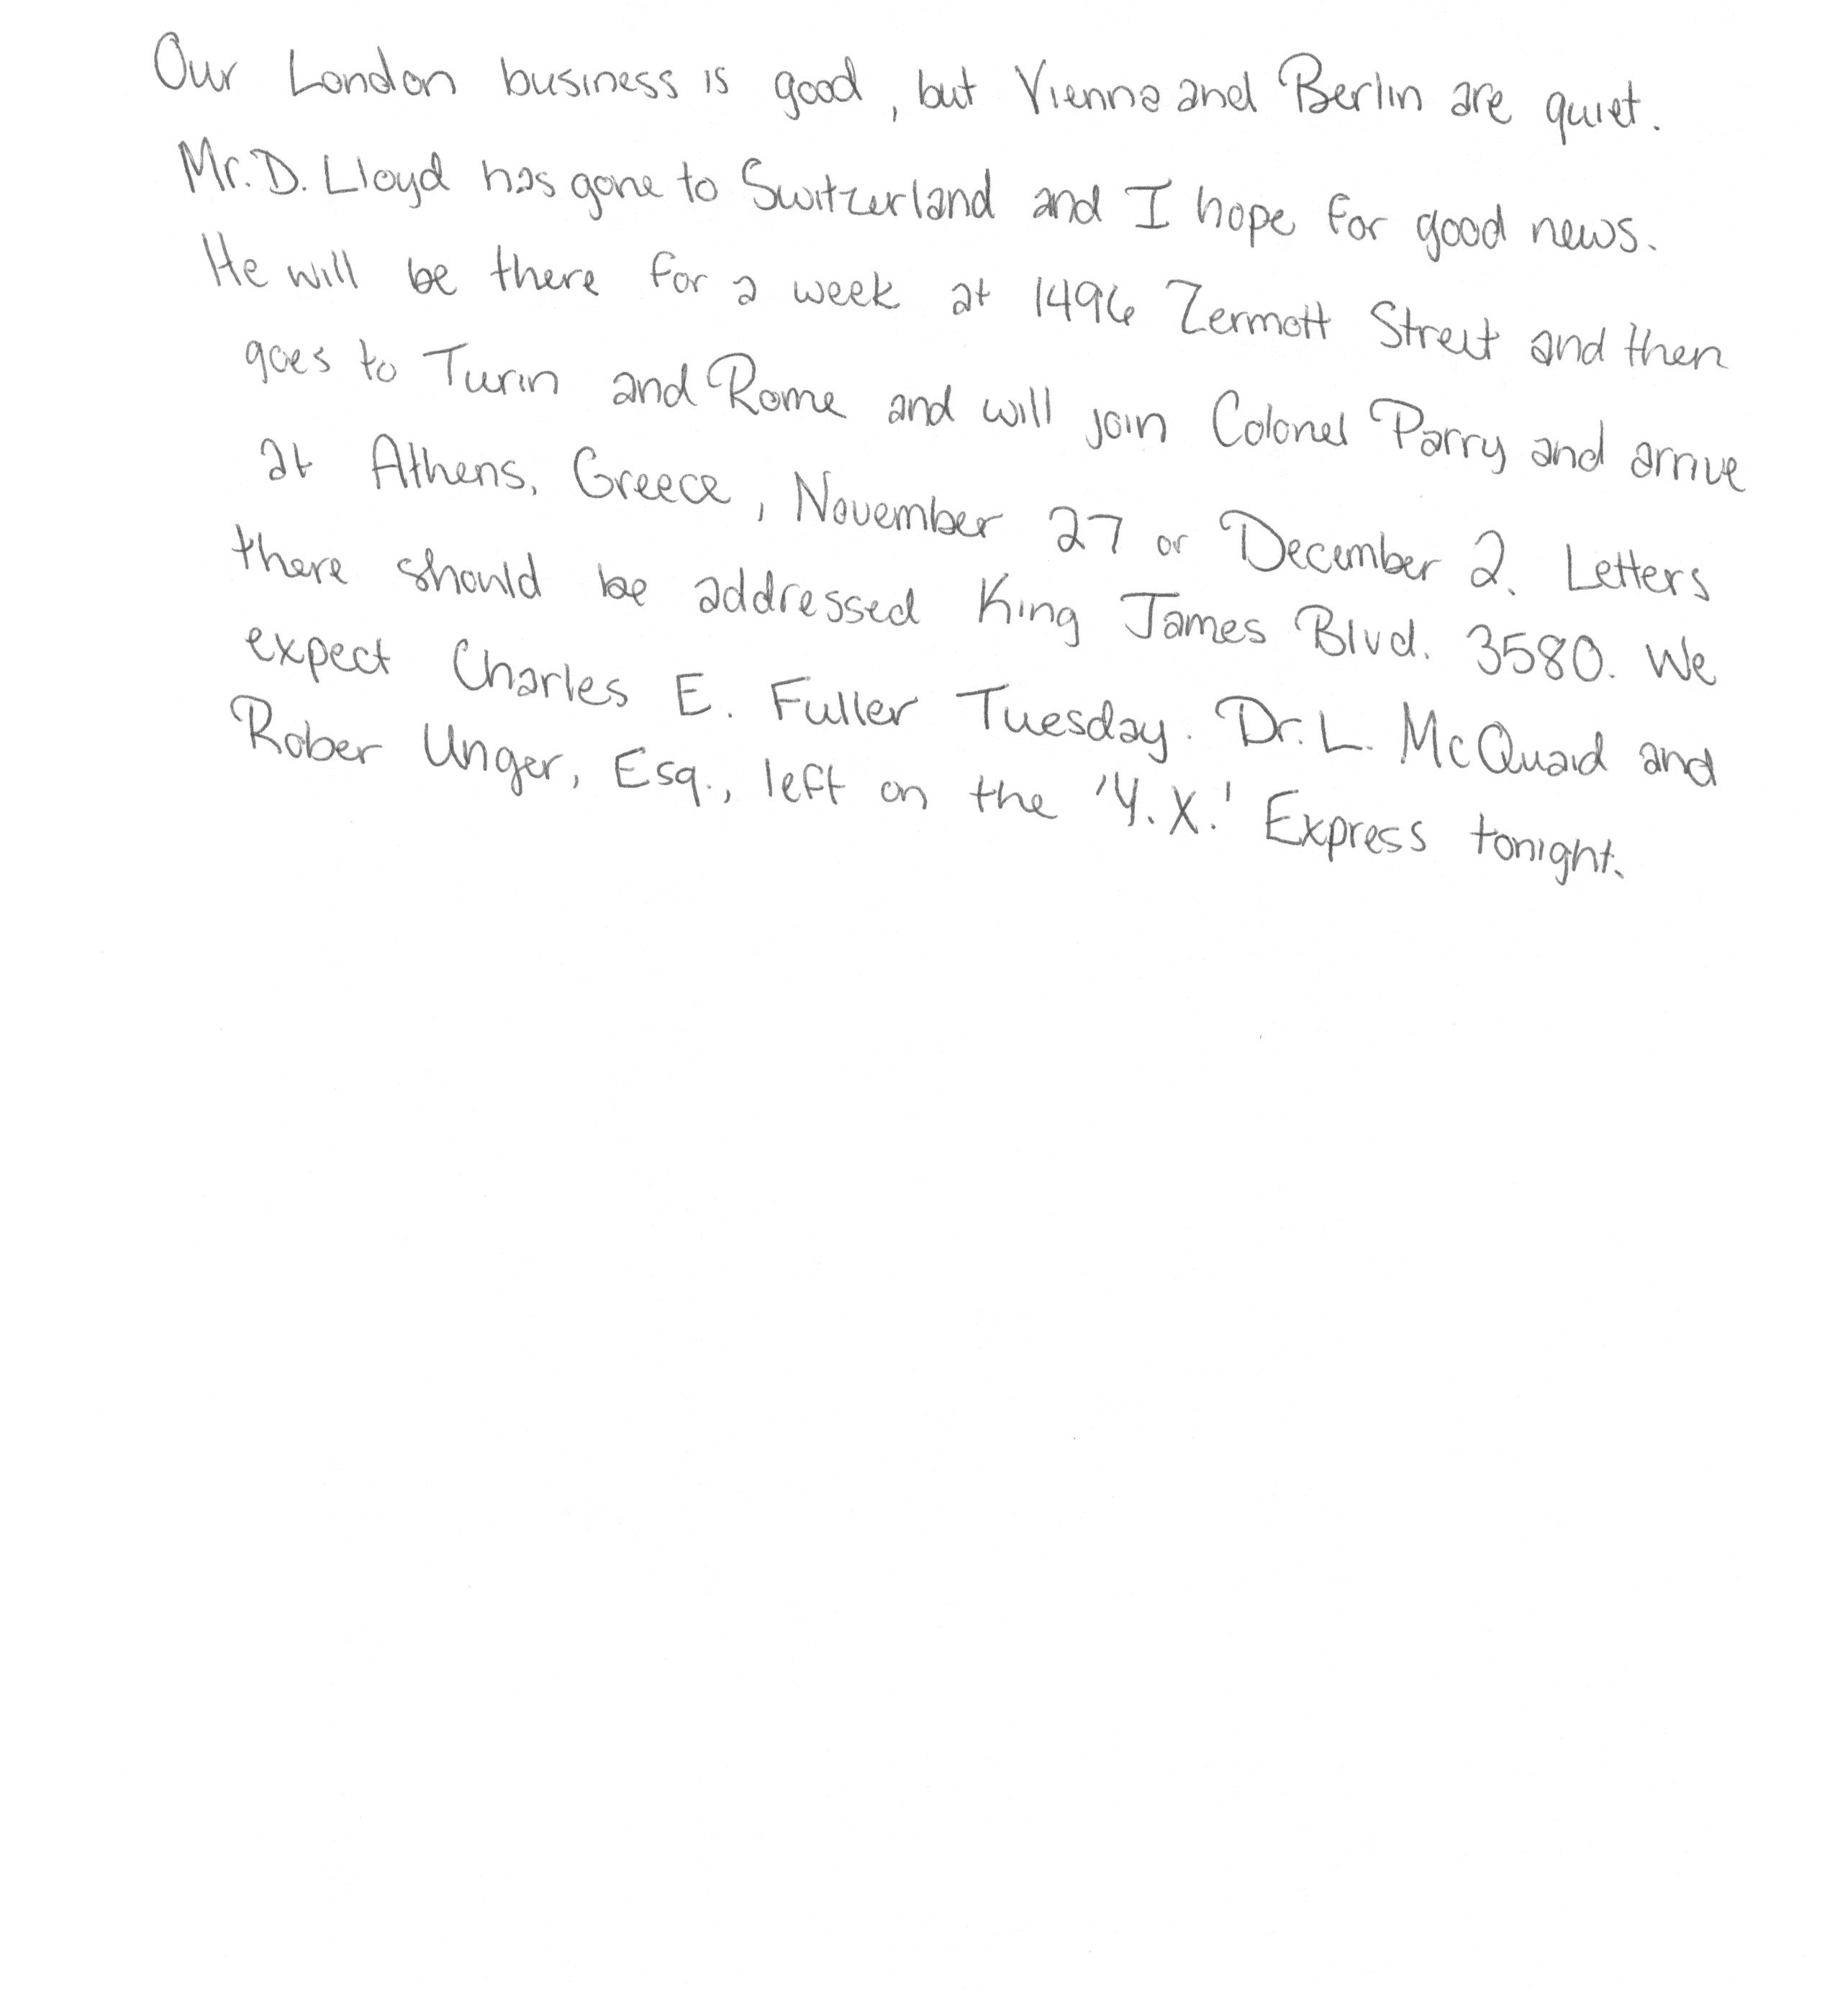 Our London business is good, but Vienna and Berlin are quiet.
Mr. D. Lloyd has gone to Switzerland and I hope for good news.
He will be there for a week at 1496 Zermott Street and then
goes to Turin and Rome and will join Colonel Parry and arrive
at Athens, Greece, November 27 or December 2. Letters
there should be addressed King James Blvd. 3580. We
expect Charles E. Fuller Tuesday. Dr. L. McQuaid and
Rober Unger, Esq., left on the 'Y.X.' Express tonight.